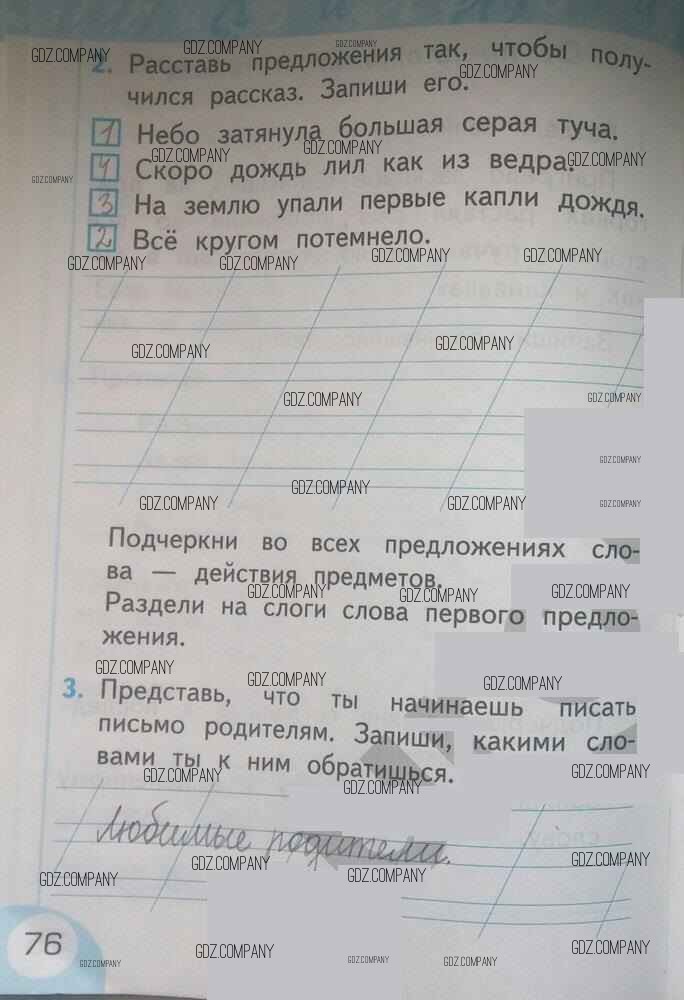 2. Расставь предложения так, чтобы полу-
чился рассказ. Запиши его.
1 Небо затянула большая серая туча.
4 Скоро дождь лил как из ведра.
3 На землю упали первые капли дождя.
2 Всё кругом потемнело.
Подчеркни во всех предложениях сло-
ва — действия предметов.
Раздели на слоги слова первого предло-
жения.
3. Представь, что ты начинаешь писать
письмо родителям. Запиши, какими сло-
вами ты к ним обратишься.
Любимые родители.
76
GDZ.COMPANY